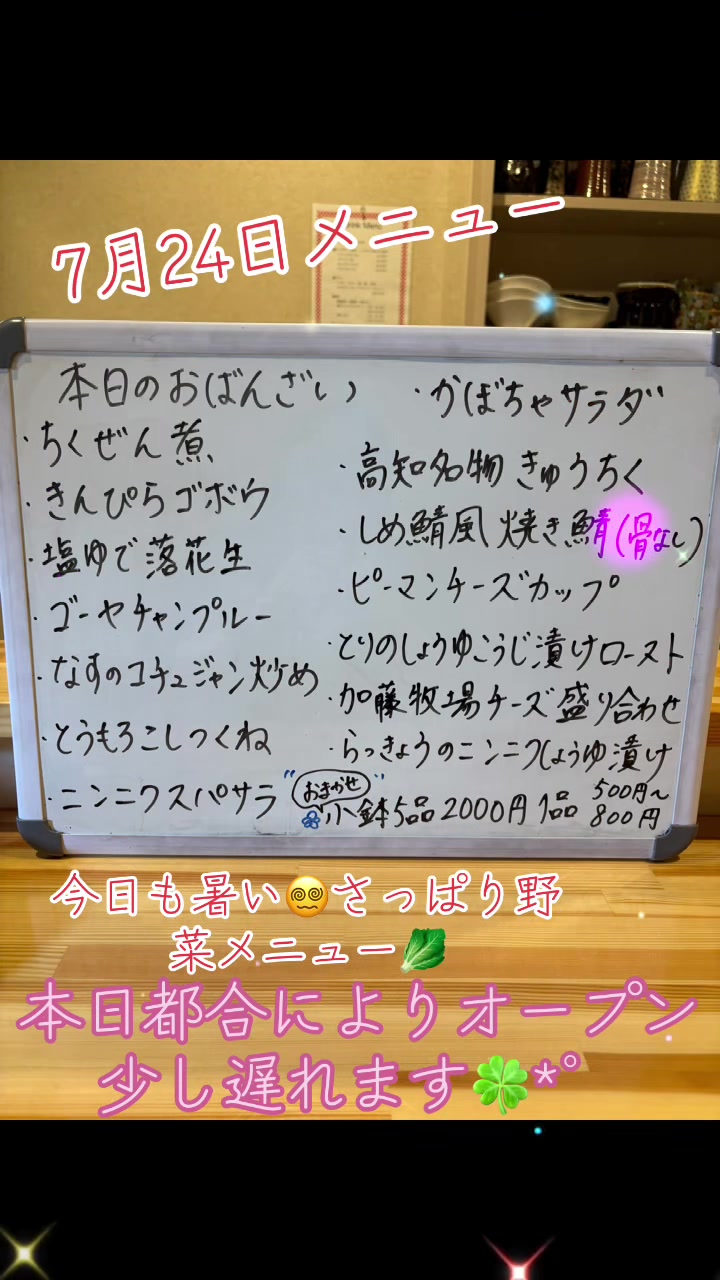 7月24日メニュー
本日のおばんざい
・ちくぜん煮
・きんぴらゴボウ
・塩ゆで落花生
・ゴーヤチャンプルー
・なすのコチュジャン炒め
・とうもろこしつくね
・ニンニクスパサラ
・かぼちゃサラダ
・高知名物 きゅうちく
・しめ鯖風 焼き鯖(骨なし)
・ピーマンチーズカップ
・とりのしょうゆこうじ漬けロースト
・加藤牧場チーズ盛り合わせ
・らっきょうのニンニクしょうゆ漬け
"おまかせ"
小鉢5品2000円 1品 500円〜
800円
今日も暑い😵‍💫さっぱり野
菜メニュー🥬
本日都合によりオープン
少し遅れます🍀*°